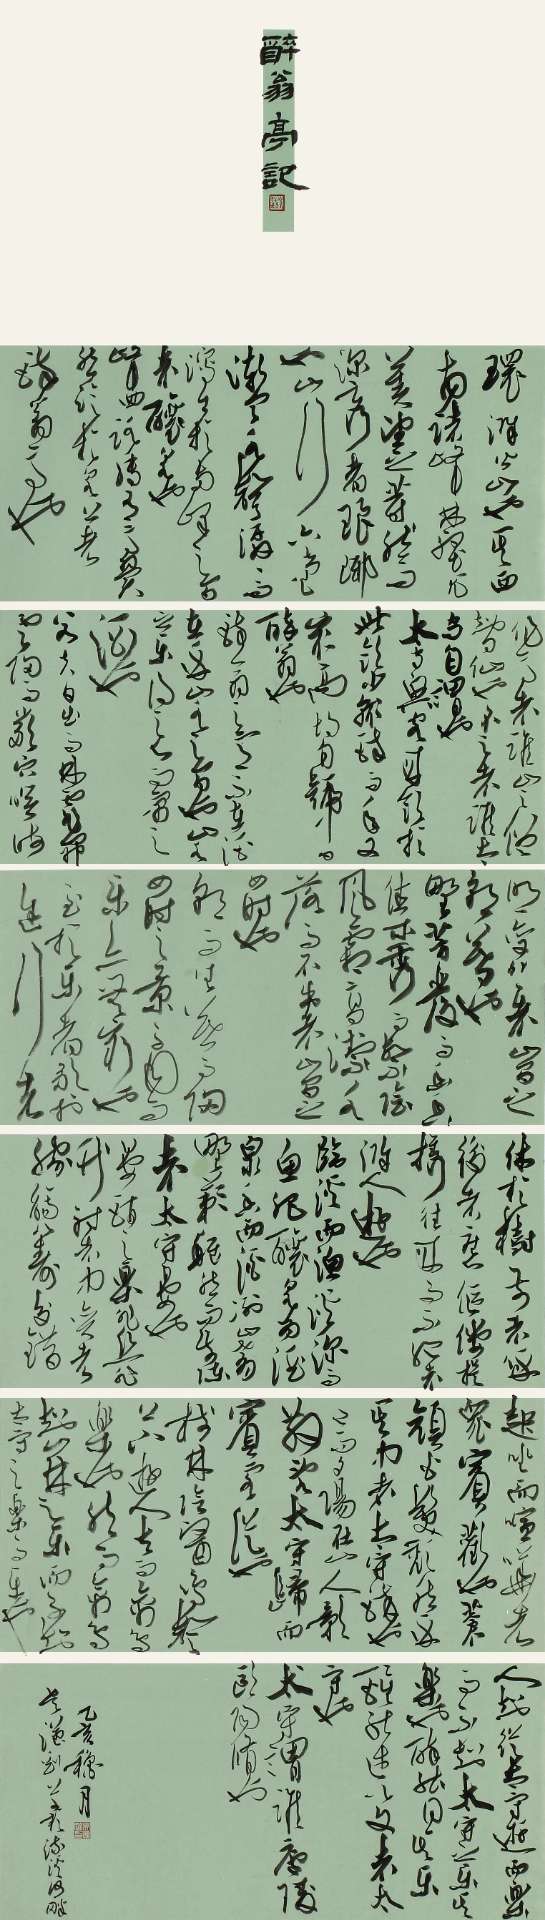 醉翁亭記
環滁皆山也其西
南諸峰林壑尤
美望之蔚然而
深秀者琅琊
也山行六七里
漸聞水聲潺潺而
瀉出於兩峰之間
者釀泉也
峰回路轉有亭翼
然臨於泉上者
醉翁亭也
作亭者誰山之僧
智仙也名之者誰太
守自謂也
太守與客來飲於
此飲少輒醉而年又
最高故自號曰
醉翁也
醉翁之意不在酒
在乎山水之間也山水
之樂得之心而寓之
酒也
若夫日出而林霏開
雲歸而巖穴暝晦
明變化者山間之
朝暮也
野芳發而幽香
佳木秀而繁陰
風霜高潔水
落而石出者山間之
四時也
朝而往暮而歸
四時之景不同而
樂亦無窮也
至於者歌於
途行者
休於樹前者呼
後者應傴僂提
攜往來而不絕者
滁人遊也
臨溪而漁溪深而
魚肥釀泉為酒
泉香而酒洌山肴
野蔌雜然而前陳
者太守宴也
宴酣之樂非絲非
竹射者中弈者
勝觥籌交錯
起坐而喧嘩者
眾賓歡也蒼
顏白髮頹然乎
其中者太守醉也
已而夕陽在山人影
散亂太守歸而
賓客從也
樹林陰翳鳴聲
上下遊人去而禽鳥
樂也然而禽鳥
知山林之樂而不知
人知從太守遊而樂
而不知太守之樂其
樂也醉能同其樂
醒能述以文者太
守也
太守謂誰廬陵
歐陽修也
乙亥月